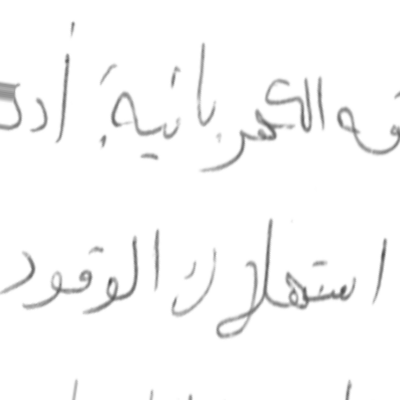 الكهربائية. أدى
استهلاك الوقود